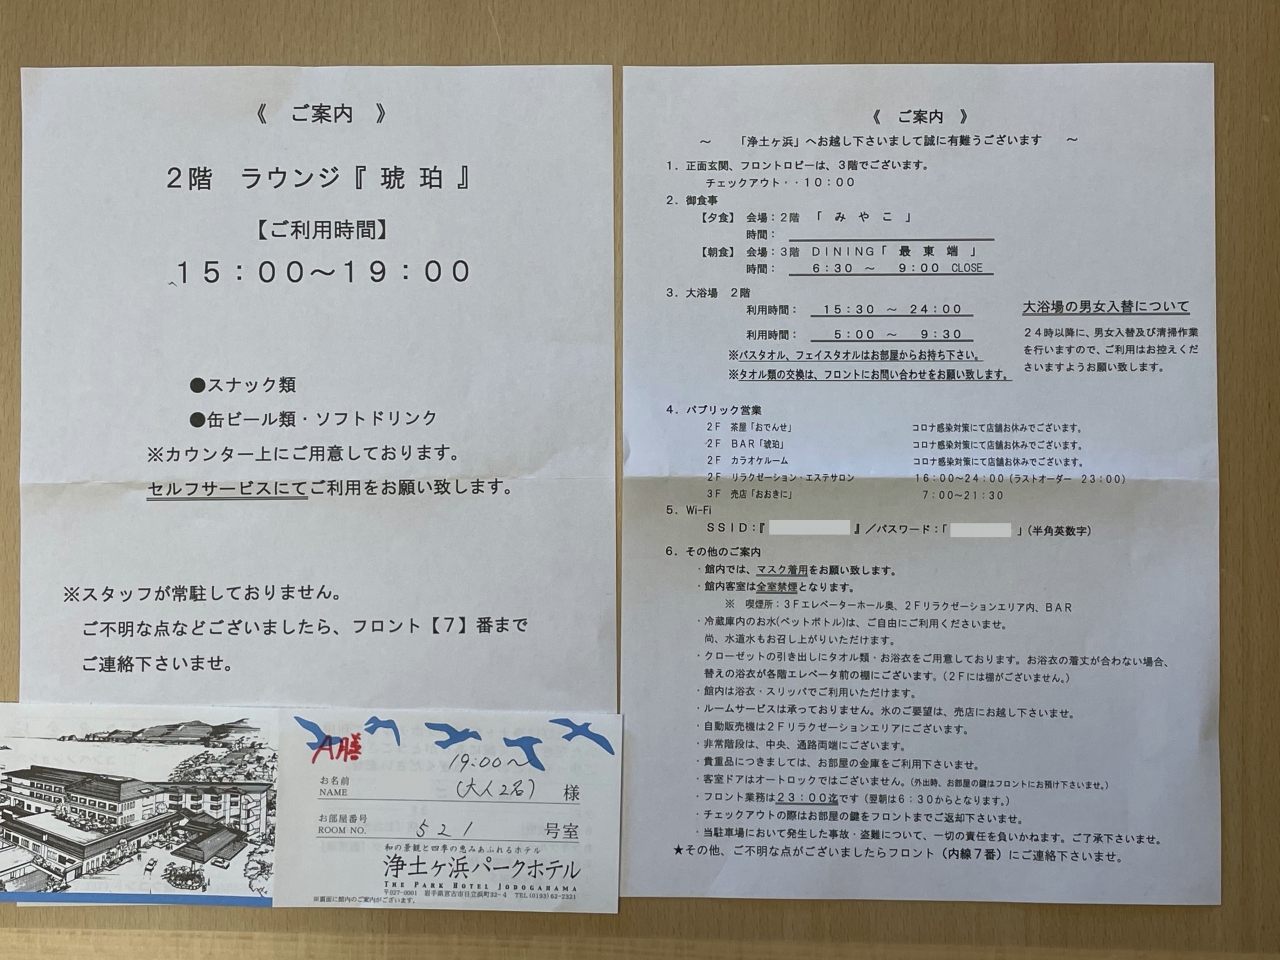 《 ご案内 》
2階 ラウンジ『 琥 珀 』
【ご利用時間】
15：00～19：00
●スナック類
●缶ビール類・ソフトドリンク
※カウンター上にご用意しております。
セルフサービスにてご利用をお願い致します。
※スタッフが常駐しておりません。
ご不明な点などございましたら、フロント【7】番まで
ご連絡下さいませ。
A膳
19:00～
お名前
NAME
(大人2名) 様
お部屋番号
ROOM NO.
521 号室
和の景観と四季の恵みあふれるホテル
浄土ヶ浜パークホテル
THE PARK HOTEL JODOGAHAMA
〒027-0001 岩手県宮古市日立浜町32-4 TEL(0193)62-2321
※裏面に館内のご案内がございます。
《 ご案内 》
～ 「浄土ヶ浜」へお越し下さいまして誠に有難うございます ～
1．正面玄関、フロントロビーは、3階でございます。
チェックアウト・・10：00
2．御食事
【夕食】 会場：2階 「 み や こ 」
時間：
【朝食】 会場：3階 DINING「 最 東 端 」
時間： 6：30 ～ 9：00 CLOSE
3．大浴場 2階
利用時間： 15：30 ～ 24：00
利用時間： 5：00 ～ 9：30
※バスタオル、フェイスタオルはお部屋からお持ち下さい。
※タオル類の交換は、フロントにお問い合わせをお願い致します。
大浴場の男女入替について
24時以降に、男女入替及び清掃作業
を行いますので、ご利用はお控えくだ
さいますようお願い致します。
4．パブリック営業
2F 茶屋「おでんせ」 コロナ感染対策にて店舗お休みでございます。
2F BAR「琥珀」 コロナ感染対策にて店舗お休みでございます。
2F カラオケルーム コロナ感染対策にて店舗お休みでございます。
2F リラクゼーション・エステサロン 16：00～24：00（ラストオーダー 23：00）
3F 売店「おおきに」 7：00～21：30
5．Wi-Fi
SSID：『 』／パスワード：「 」（半角英数字）
6．その他のご案内
・館内では、マスク着用をお願い致します。
・館内客室は全室禁煙となります。
※ 喫煙所：3Fエレベーターホール奥、2Fリラクゼーションエリア内、BAR
・冷蔵庫内のお水(ペットボトル)は、ご自由にご利用くださいませ。
尚、水道水もお召し上がりいただけます。
・クローゼットの引き出しにタオル類・お浴衣をご用意しております。お浴衣の着丈が合わない場合、
替えの浴衣が各階エレベータ前の棚にございます。（2Fには棚がございません。）
・館内は浴衣・スリッパでご利用いただけます。
・ルームサービスは承っておりません。氷のご要望は、売店にお越し下さいませ。
・自動販売機は2Fリラクゼーションエリアにございます。
・非常階段は、中央、通路両端にございます。
・貴重品につきましては、お部屋の金庫をご利用下さいませ。
・客室ドアはオートロックではございません。（外出時、お部屋の鍵はフロントにお預け下さいませ。）
・フロント業務は23：00迄です（翌朝は6：30からとなります。）
・チェックアウトの際はお部屋の鍵をフロントまでご返却下さいませ。
・当駐車場において発生した事故・盗難について、一切の責任を負いかねます。ご了承下さいませ。
★その他、ご不明な点がございましたらフロント（内線7番）にご連絡下さいませ。